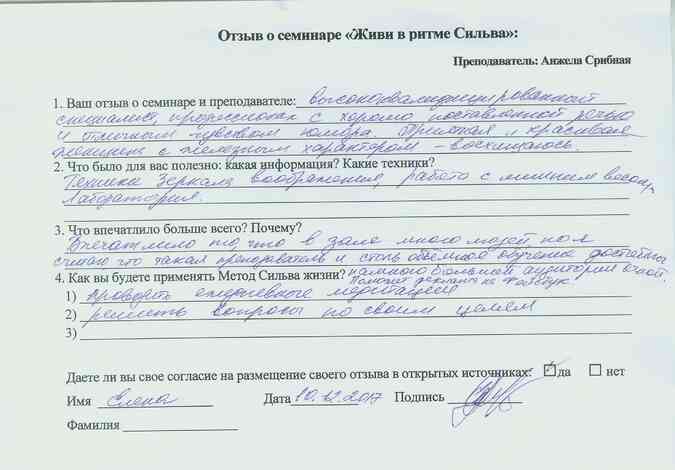 Отзыв о семинаре «Живи в ритме Сильва»:
Преподаватель: Анжела Срибная
1. Ваш отзыв о семинаре и преподавателе: высококвалифицированный
специалист, профессионал с хорошо поставленной речью
и отличным чувством юмора. Приятная и красивая
женщина с железным характером - восхищаюсь.
2. Что было для вас полезно: какая информация? Какие техники?
Техника Зеркала воображения, работа с лишним весом,
Лаборатория.
3. Что впечатлило больше всего? Почему?
Впечатлило то, что в зале много людей, но я
считаю что такая преподаватель и столь объемное обучение достойны
4. Как вы будете применять Метод Сильва жизни? намного большей аудитории
Поможет реклама на Фейсбук.
1) проводить ежедневные медитации
2) решать вопросы по своим целям
3)
Даете ли вы свое согласие на размещение своего отзыва в открытых источниках: да нет
Имя Елена Дата 10.12.2017 Подпись
Фамилия